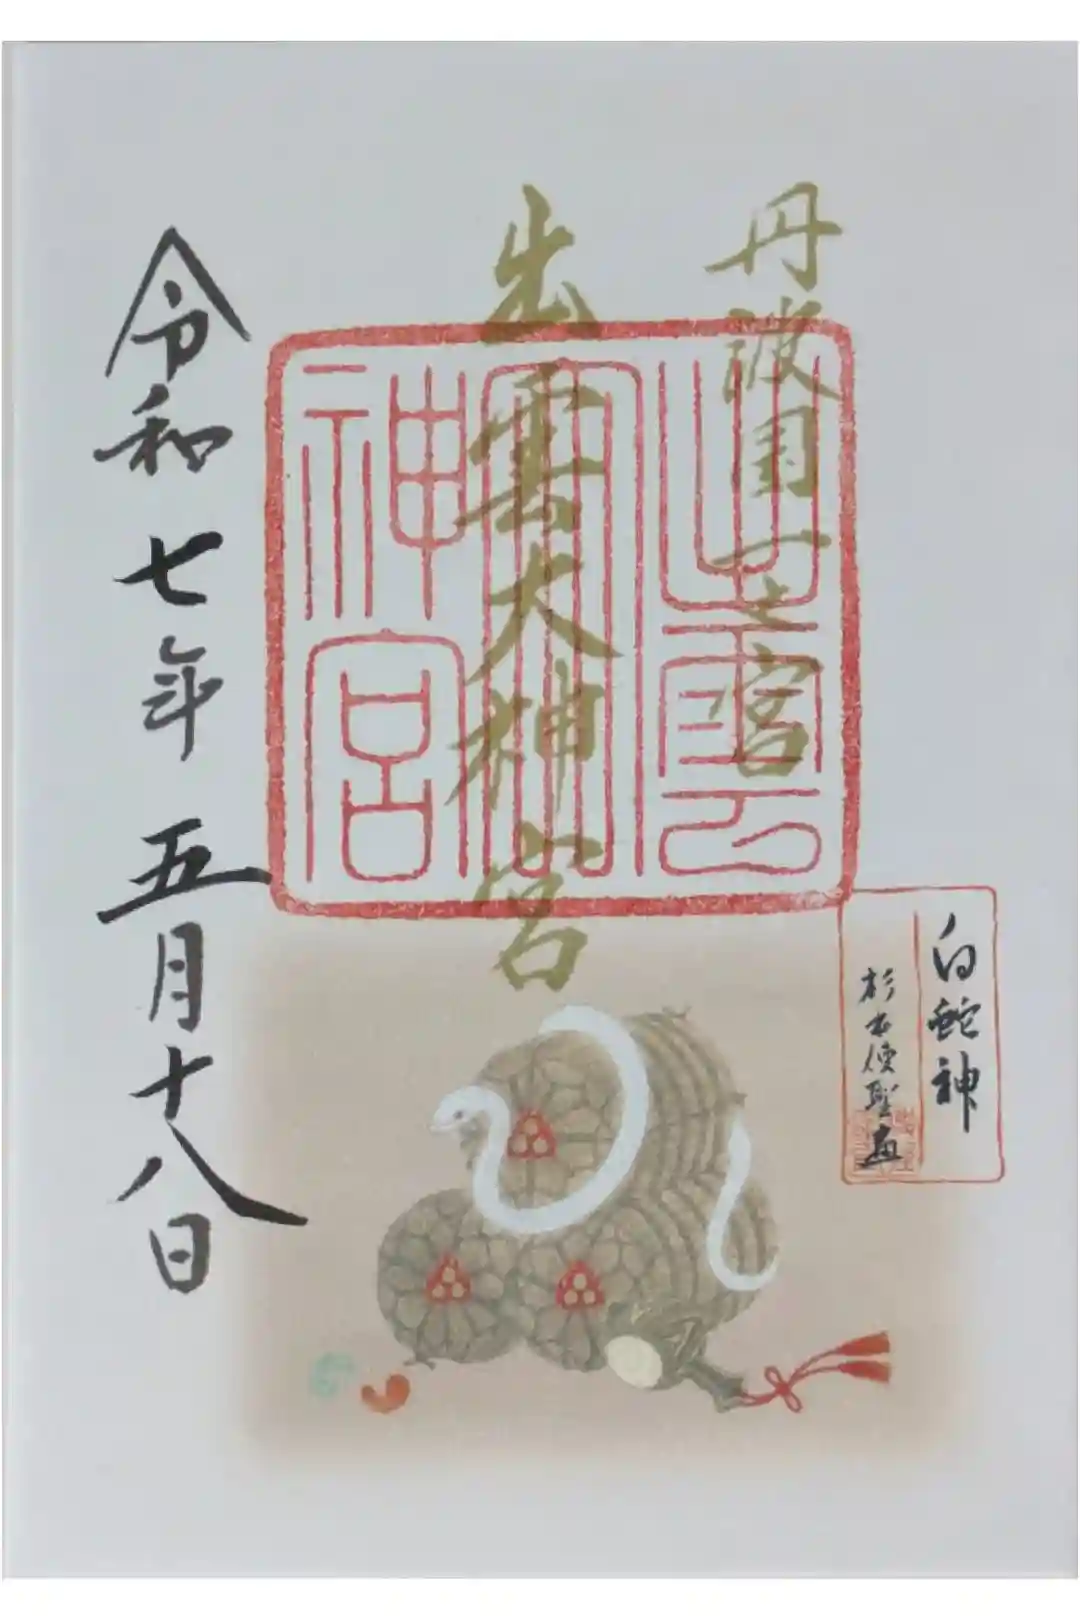 丹波国一之宮
出雲大神宮
出雲大神宮
令和七年五月十八日
白蛇神